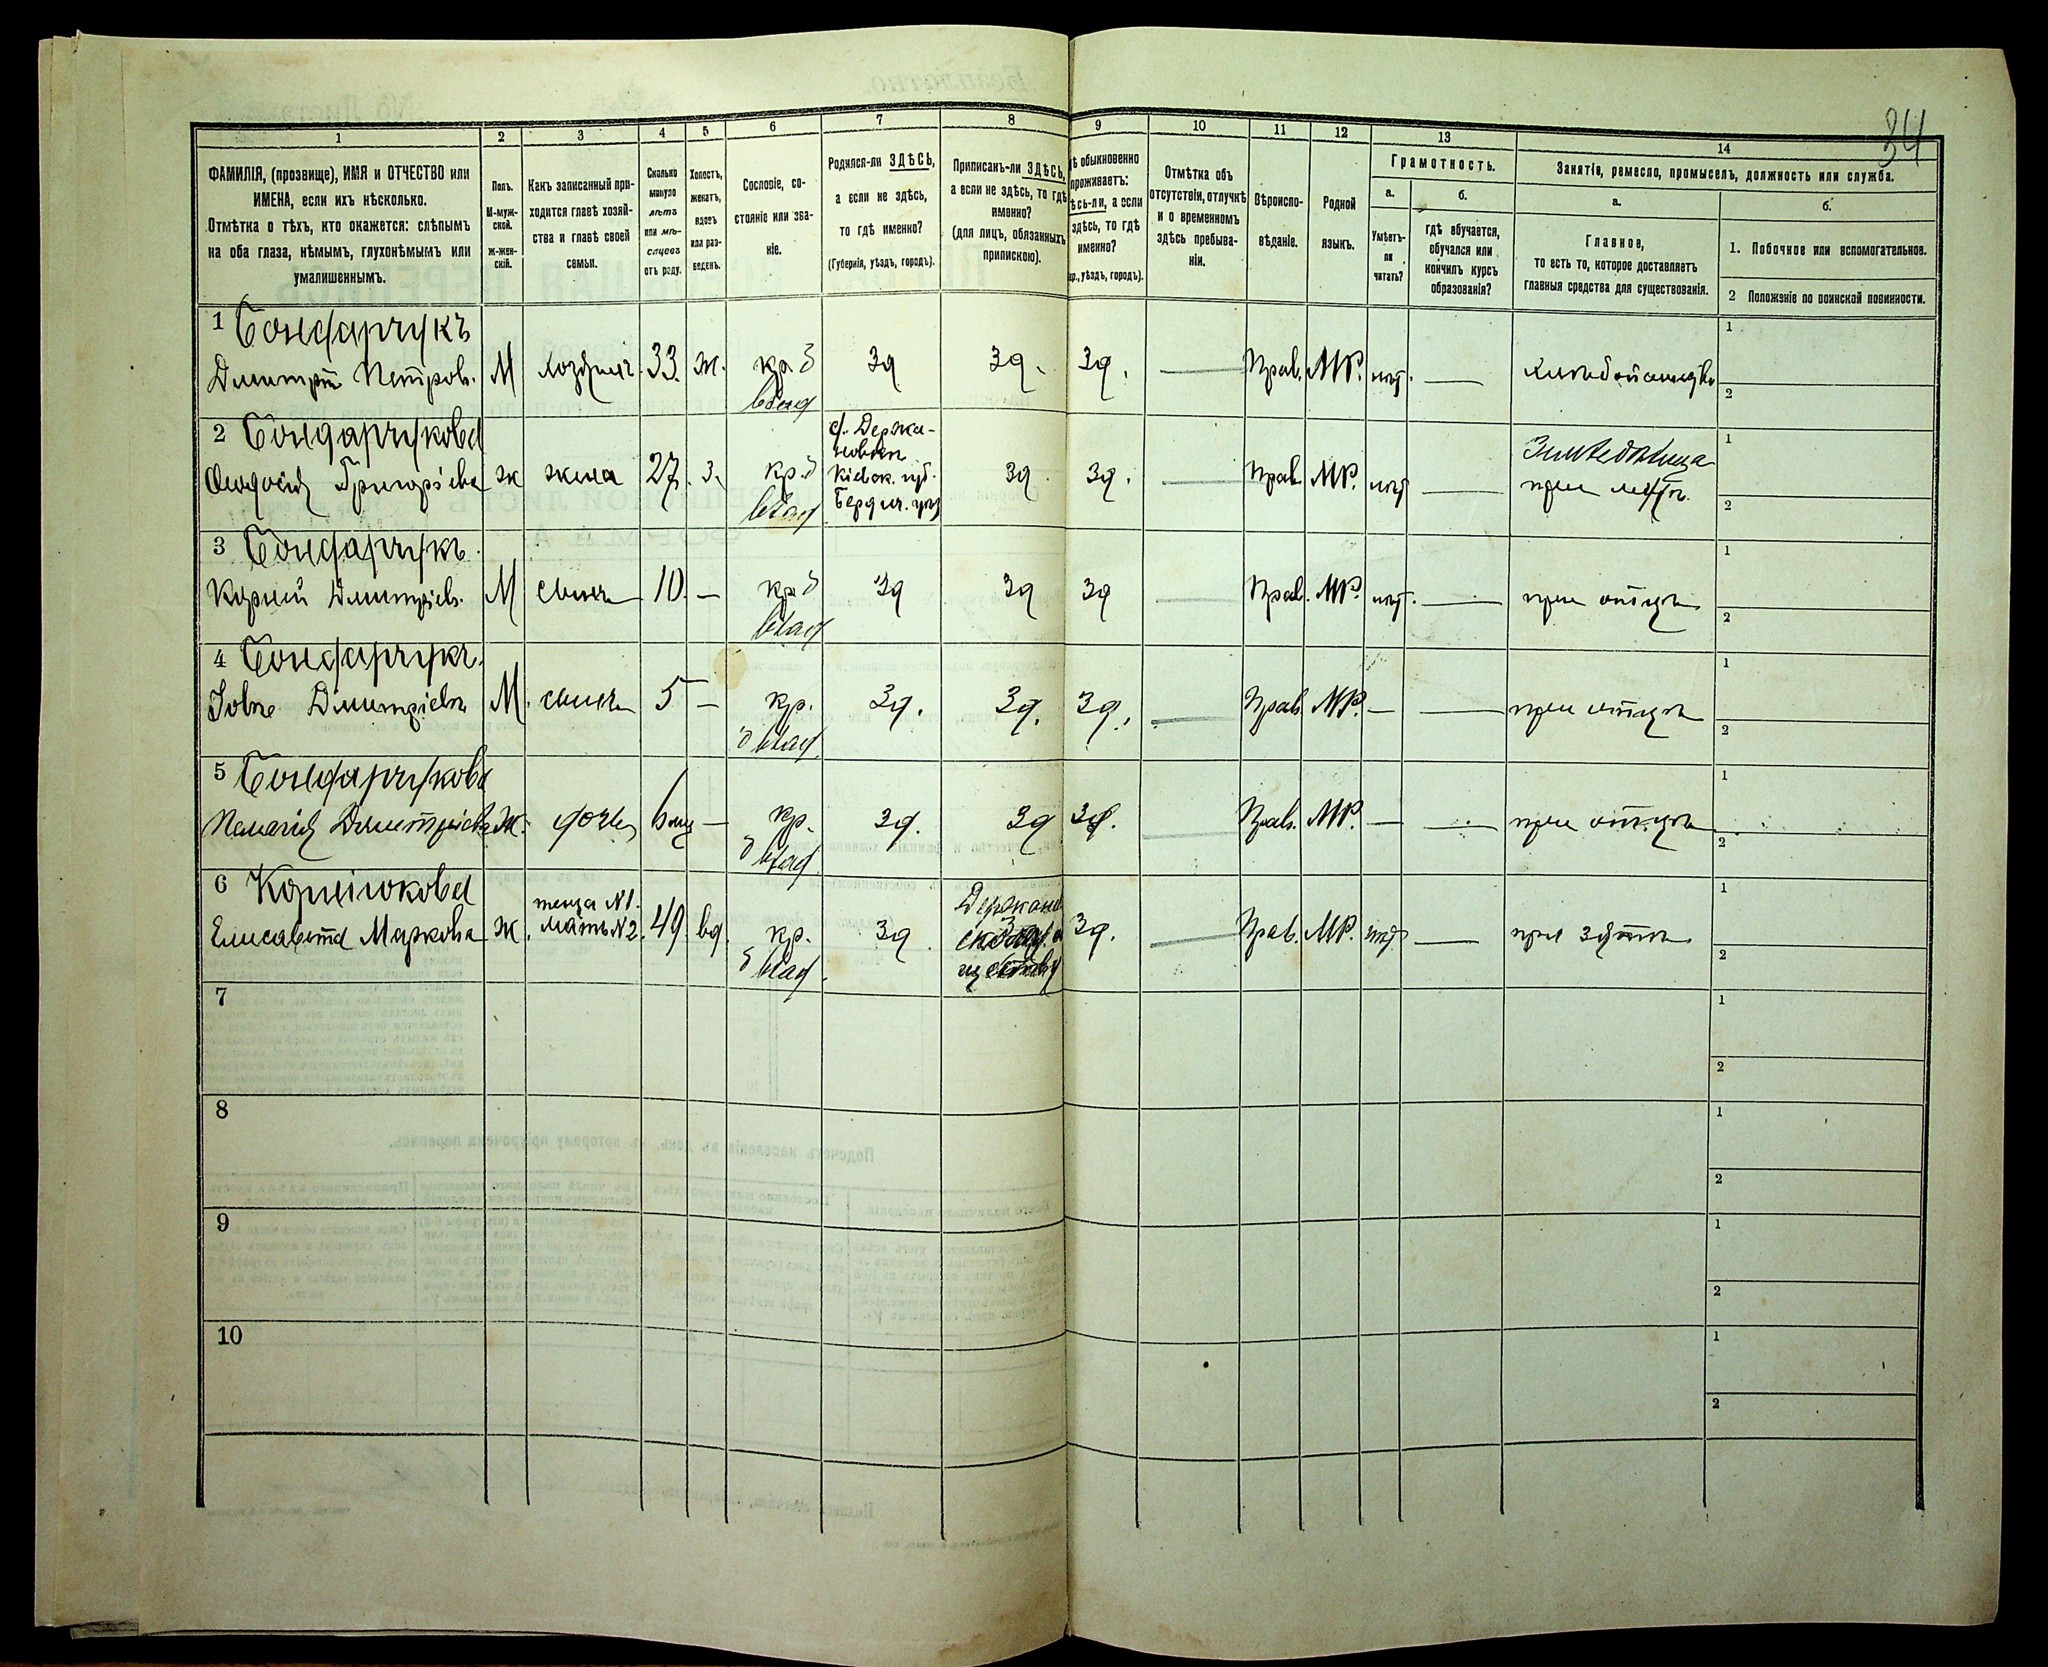 34
1 2 3 4 5 6 7 8 9 10 11 12 13 14
ФАМИЛІЯ, (прозвище), ИМЯ и ОТЧЕСТВО или
ИМЕНА, если ихъ нѣсколько.
Отмѣтка о тѣхъ, кто окажется: слѣпымъ
на оба глаза, нѣмымъ, глухонѣмымъ или
умалишеннымъ.
Полъ.
М-муж-
ской.
ж-жен-
скій.
Какъ записанный при-
ходится главѣ хозяй-
ства и главѣ своей
семьи.
Сколько
минуло
лѣтъ
или мѣ-
сяцевъ
отъ роду.
Холостъ,
женатъ,
вдовъ
или раз-
веденъ.
Сословіе, со-
стояніе или зва-
ніе.
Родился-ли ЗДѢСЬ,
а если не здѣсь,
то гдѣ именно?
(Губернія, уѣздъ, городъ).
Приписанъ-ли ЗДѢСЬ,
а если не здѣсь, то гдѣ
именно?
(для лицъ, обязанныхъ
припискою).
ѣ обыкновенно
проживаетъ:
ѣсь-ли, а если
здѣсь, то гдѣ
именно?
р., уѣздъ, городъ).
Отмѣтка объ
отсутствіи, отлучкѣ
и о временномъ
здѣсь пребыва-
ніи.
Вѣроиспо-
вѣданіе.
Родной
языкъ.
Грамотность.
а.
Умѣетъ-
ли
читать?
б.
гдѣ обучается,
обучался или
кончилъ курсъ
образованія?
Занятіе, ремесло, промыселъ, должность или служба.
а.
Главное,
то есть то, которое доставляетъ
главныя средства для существованія.
б.
1. Побочное или вспомогательное.
2 Положеніе по воинской повинности.
1 Бондарчукъ
Дмитрій Петров. М хозяинъ 33. ж. кр. б влад Зд Зд. Зд. Прав. МР. нѣт. — хлѣбопашество
1
2
2 Бондарчукова
Феодосія Григоріева ж жена 27. з. кр. б влад
с. Держа-
новки
Кіевск. губ.
Бердич. уѣз
Зд. Зд. Прав. МР. нѣт —
Земледѣлица
при мужѣ.
1
2
3 Бондарчукъ.
Корній Дмитріев. М сынъ 10. — кр б влад Зд Зд Зд Прав. МР. нѣт. — при отцѣ
1
2
4 Бондарчукъ.
Іовъ Дмитріевъ М. сынъ 5 — кр. б влад Зд. Зд. Зд. Прав МР. — — при отцѣ
1
2
5 Бондарчукова
Пелагія Дмитріева Ж. дочь 6 мѣ — кр. б влад Зд. Зд Зд. Прав. МР. — — при отцѣ
1
2
6 Корнѣюкова
Елисавета Маркова ж.
теща N1.
мать N2.
49 вд. кр. б влад. Зд. Зд. Прав. МР. нѣт — при зятѣ
1
2
7
1
2
8
1
2
9
1
2
10
1
2